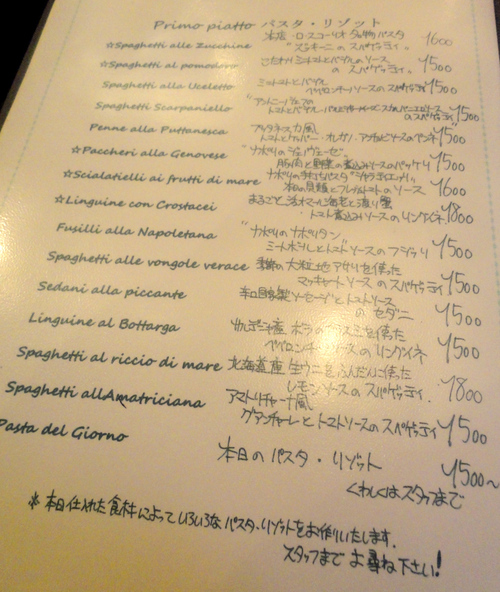 Primo piatto パスタ・リゾット
☆Spaghetti alle Zucchine 1600
"ズッキーニのスパゲッティ"
☆Spaghetti al pomodoro ミニトマトとバジルのソース 1500
のスパゲッティ。
Spaghetti alla Uceletto 1500
ペペロンチーノソースのスパゲッティ
Spaghetti Scarpaniello 1500
のスパゲッティ
Penne alla Puttanesca プッタネスカ風 1500
トマトとケッパー・オレガノ・アンチョビソースのペンネ
☆Paccheri alla Genovese "ナポリのジェノヴェーゼ" 1500
豚肉と野菜の煮込みソースのパッケリ
☆Scialatielli ai frutti di mare ナポリの手打ちパスタ"シャラティエッリ" 1600
☆Linguine con Crostacei まるごと活オマール海老と渡り蟹 1800
トマト煮込みソースのリングイネ
Fusilli alla Napoletana "ナポリのナポリタン" 1500
ミートボールとトマトソースのフジッリ
Spaghetti alle vongole verace 季節の大粒地アサリを使った 1500
マッキャートソースのスパゲッティ
Sedani alla piccante 辛口自家製ソーセージとトマトソース 1500
のセダニ
Linguine al Bottarga サルデーニャ産ボラのカラスミを使った 1500
ペペロンチーノソースのリングイネ
Spaghetti al riccio di mare 北海道産生ウニをふんだんに使った 1800
レモンソースのスパゲッティ。
Spaghetti allAmatriciana アマトリチャーナ風 1500
グアンチャーレとトマトソースのスパゲッティ
Pasta del Giorno 本日のパスタ・リゾット 1500〜
くわしくはスタッフまで
※本日仕入れた食材によっていろいろなパスタ・リゾットをお作りいたします。
スタッフまでお尋ね下さい!